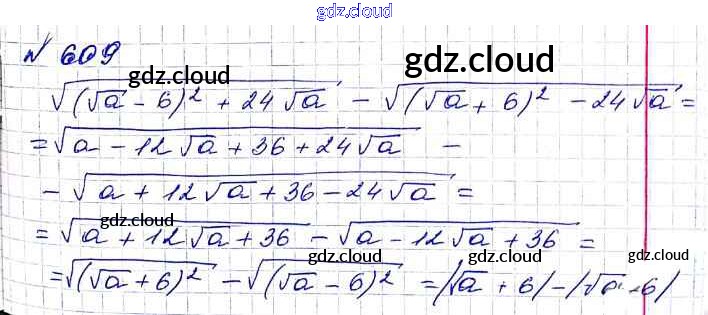 gdz.cloud
№ 609
gdz.cloud gdz.cloud
√((√a - 6)² + 24√a) - √((√a + 6)² - 24√a) =
= √(a - 12√a + 36 + 24√a) -
- √(a + 12√a + 36 - 24√a) =
gdz.cloud gdz.cloud
= √(a + 12√a + 36) - √(a - 12√a + 36) =
gdz.cloud gdz.cloud gdz.cloud
= √((√a + 6)²) - √((√a - 6)²) = |√a + 6| - |√a - 6|
gdz.cloud